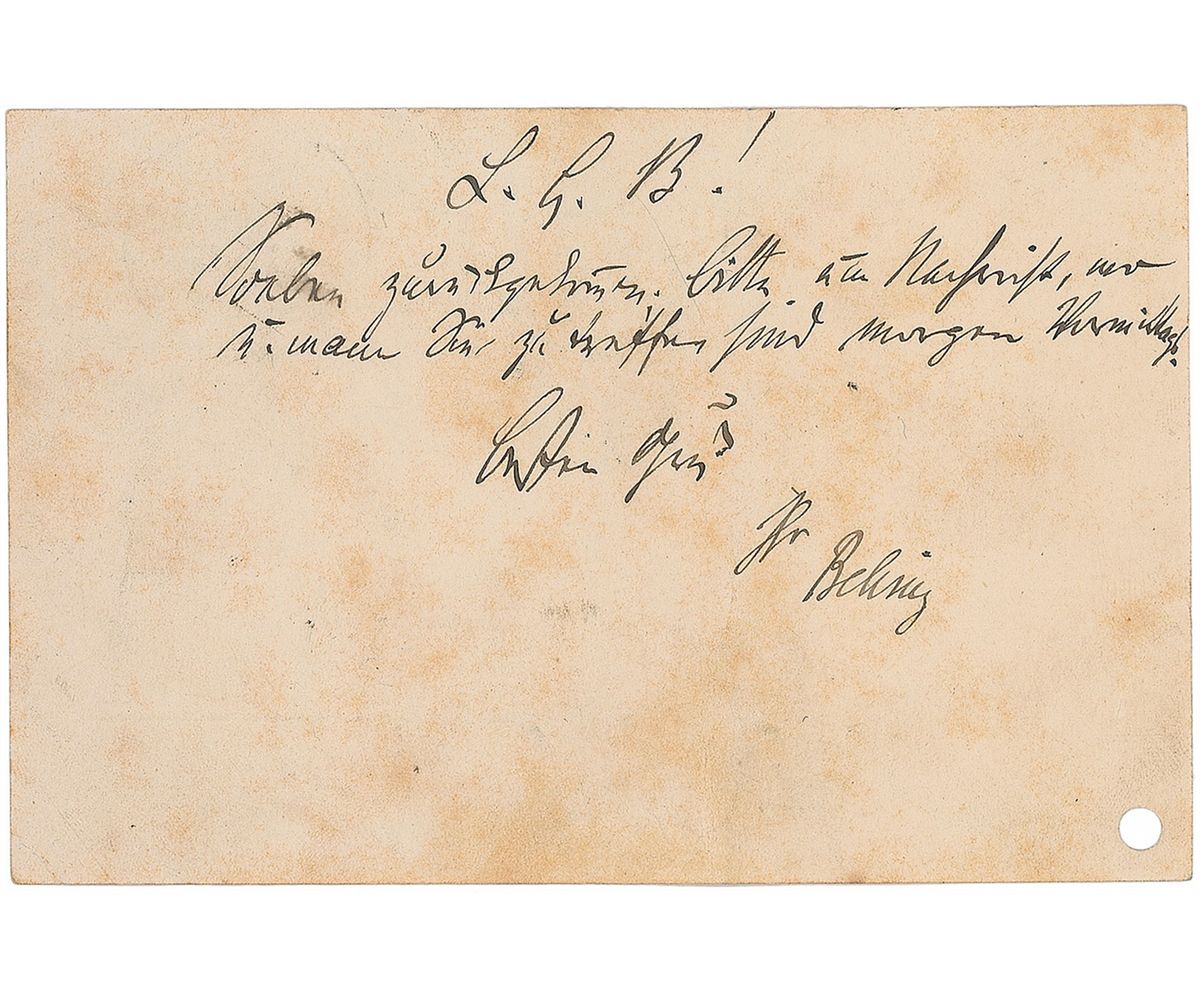 L. H. B.!
Soeben zurückgekommen. Bitte um Nachricht, wo
u. wann Sie zu treffen sind morgen Vormittag.
Besten Gruß
Ihr
Behring